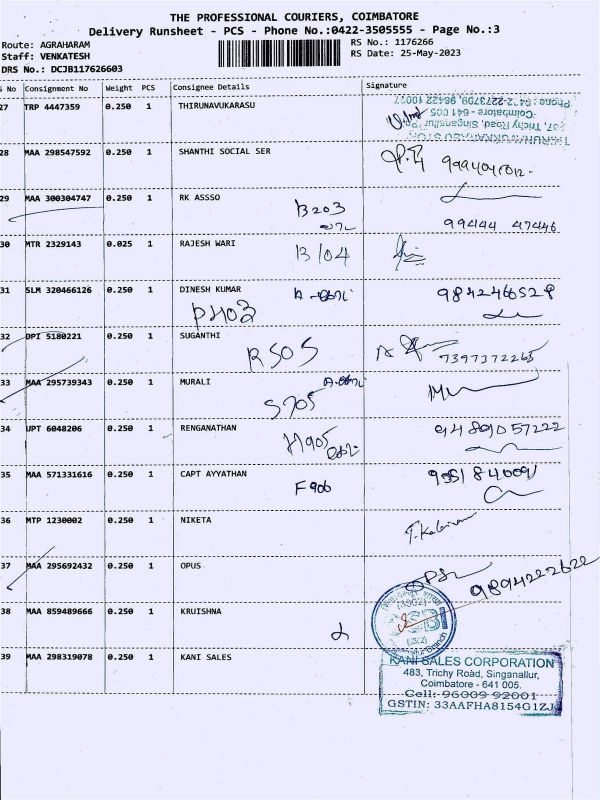 THE PROFESSIONAL COURIERS, COIMBATORE
Delivery Runsheet - PCS - Phone No.:0422-3505555 - Page No.:3
Route: AGRAHARAM
RS No.: 1176266
Staff: VENKATESH
RS Date: 25-May-2023
DRS No.: DCJB117626603
S No Consignment No Weight PCS Consignee Details Signature
27 TRP 4447359 0.250 1 THIRUNAVUKARASU
37, Trichy Road, Singanallur
Coimbatore - 641 005
28 MAA 298547592 0.250 1 SHANTHI SOCIAL SER
29 MAA 300304747 0.250 1 RK ASSSO B203
99444 47446
30 MTR 2329143 0.025 1 RAJESH WARI B104
31 SLM 320466126 0.250 1 DINESH KUMAR 9842466528
P403
32 DPI 5180221 0.250 1 SUGANTHI R505 7397372265
33 MAA 295739343 0.250 1 MURALI S705
34 UPT 6048206 0.250 1 RENGANATHAN H905 9489057222
35 MAA 571331616 0.250 1 CAPT AYYATHAN F906
36 MTP 1230002 0.250 1 NIKETA
37 MAA 295692432 0.250 1 OPUS 9894222622
38 MAA 859489666 0.250 1 KRUISHNA
39 MAA 298319078 0.250 1 KANI SALES
KANI SALES CORPORATION
483, Trichy Road, Singanallur,
Coimbatore - 641 005.
Cell: 96009 92001
GSTIN: 33AAFHA8154G1ZJ